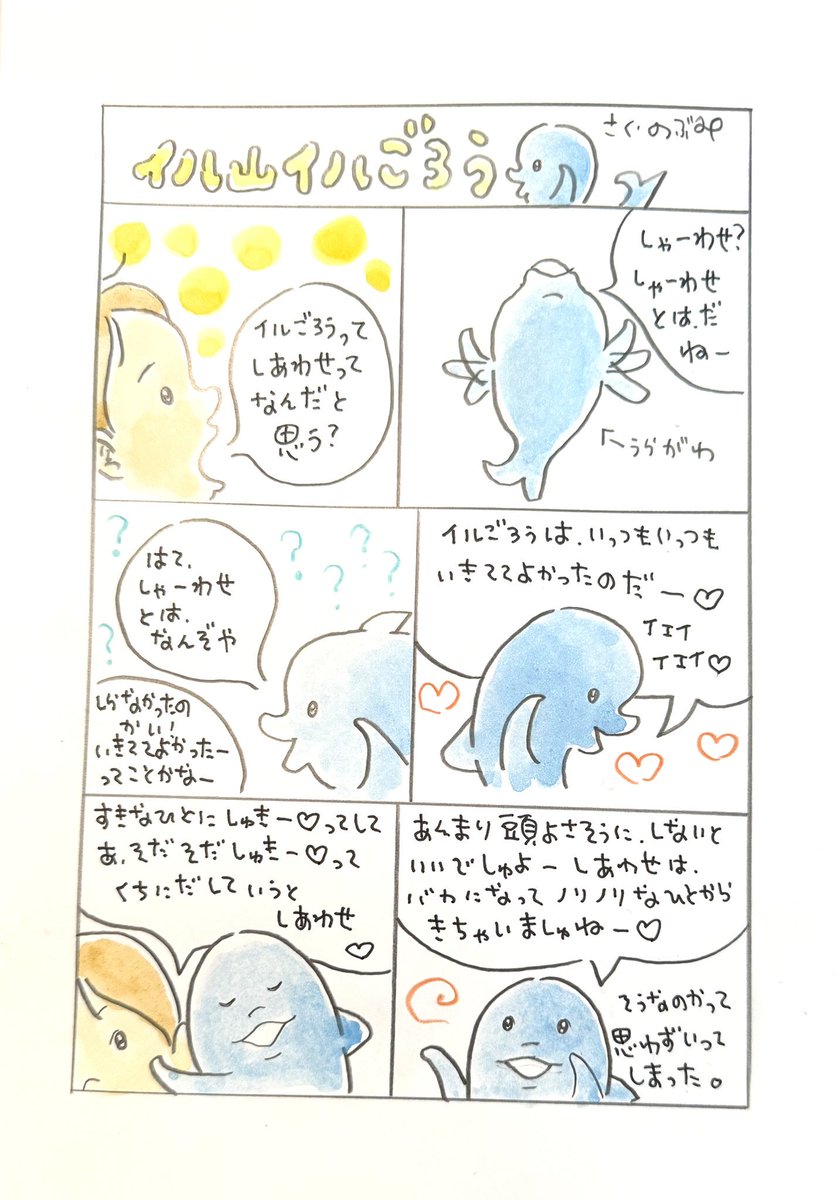 イル山イルごろう
さく・のぶみ
イルごろうって
しあわせって
なんだと
思う?
しゃーわせ?
しゃーわせ
とは、だ
ねー
うらがわ
はて、
しゃーわせ
とは、
なんぞや
しらなかったの
かい!
いきててよかったー
ってことかなー
イルごろうは、いっつもいっつも
いきててよかったのだー♡
イエイ
イエイ♡
すきなひとにしゅきー♡ってして
あ、そだそだしゅきー♡って
くちにだしていうと
しあわせ
♡
あんまり頭よさそうに、しないと
いいでしゅよーしあわせは、
バカになってノリノリなひとから
きちゃいましゅねー♡
そうなのかって
思わずいって
しまった。